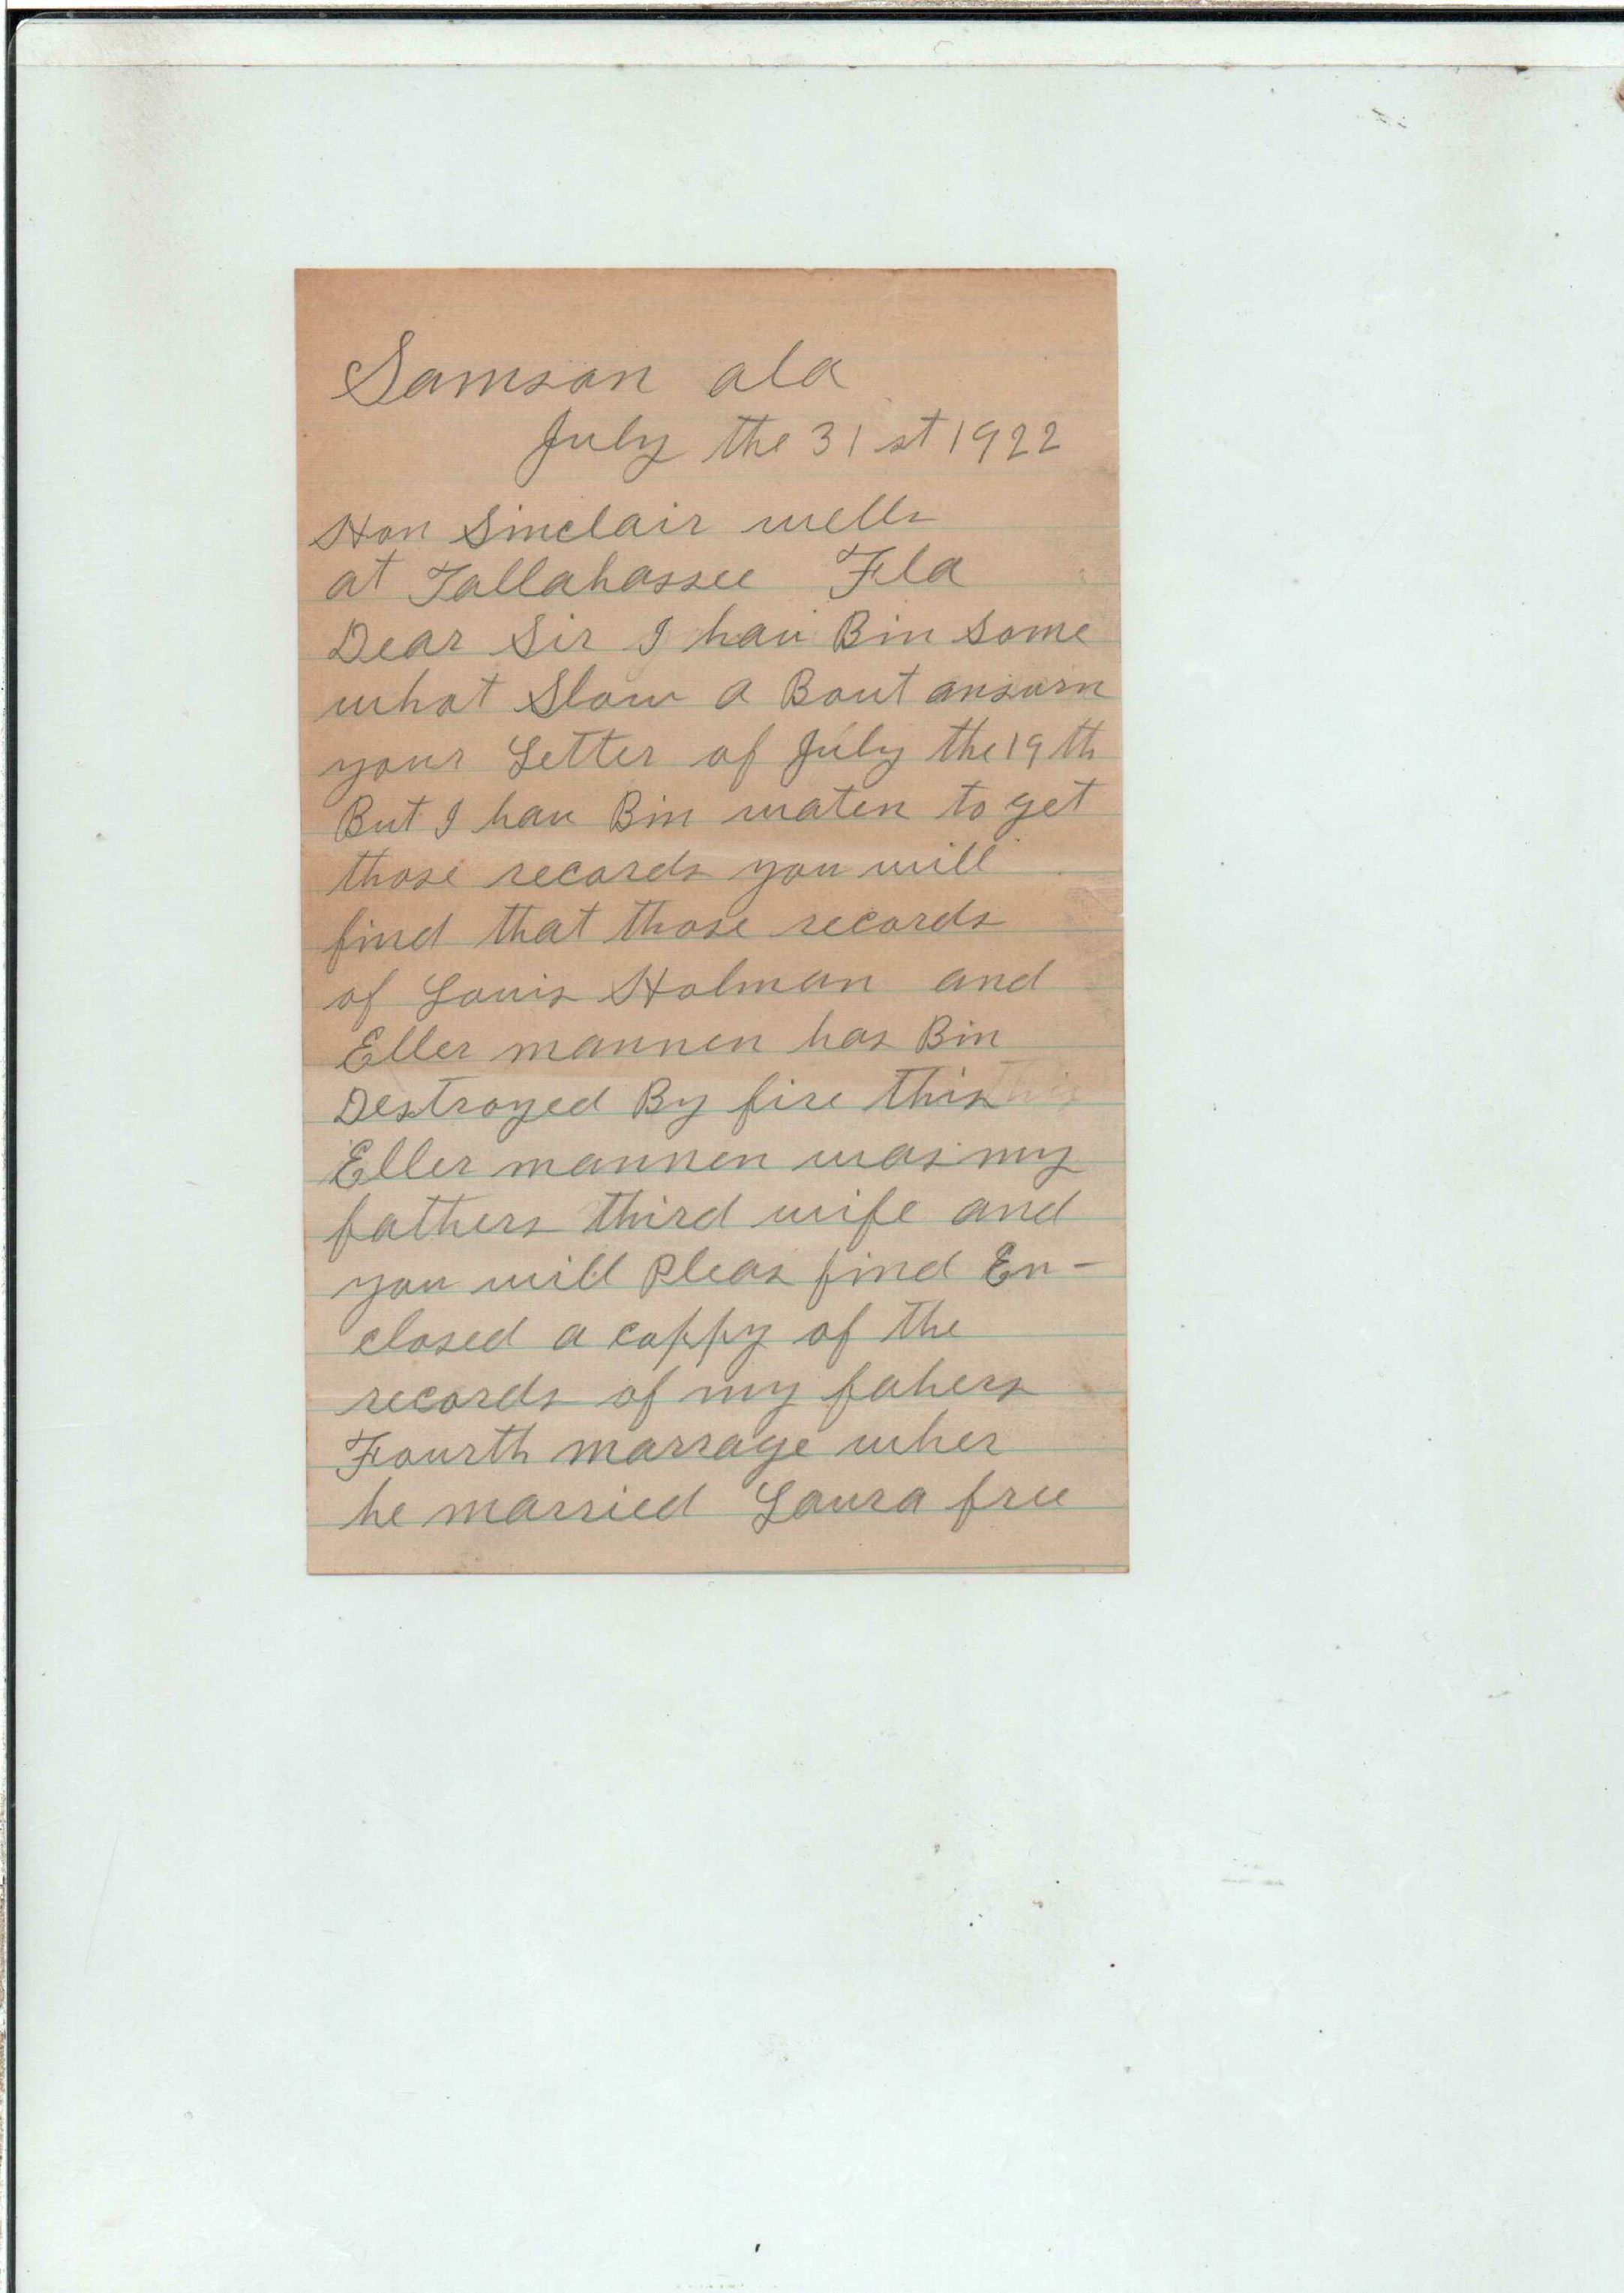 Samson ala
July the 31 st 1922
Hon Sinclair wells
at Tallahassee Fla
Dear Sir I hav Bin Some
what Slow a Bout answrn
your Letter of July the 19 th
But I hav Bin waten to get
those records you will
find that those records
of Louis Holman and
Eller mannen has Bin
Destroyed By fire this
Eller mannen was my
fathers third wife and
you will Pleas find En-
closed a coppy of the
records of my fahers
Fourth marrage wher
he married Laura free